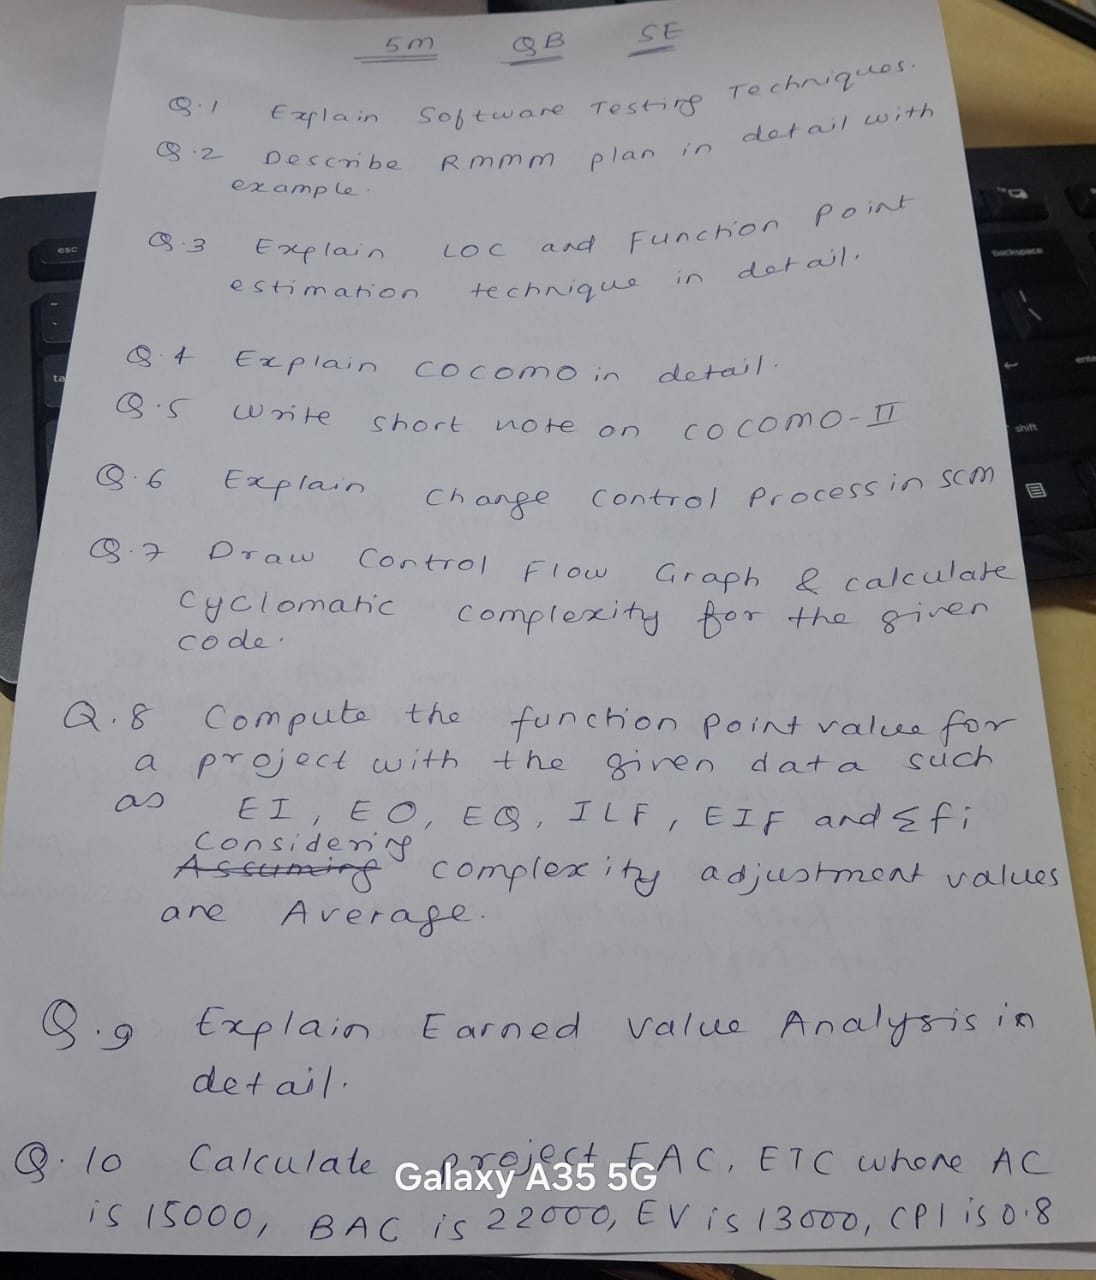 5m QB SE
Q.1 Explain Software Testing Techniques.
Q.2 Describe RMMM plan in detail with
example.
Q.3 Explain LOC and Function Point
estimation technique in detail.
Q.4 Explain COCOMO in detail.
Q.5 Write short note on COCOMO-II
Q.6 Explain Change Control Process in SCM
Q.7 Draw Control Flow Graph & calculate
Cyclomatic complexity for the given
code.
Q.8 Compute the function point value for
a project with the given data such
as EI, EO, EQ, ILF, EIF and Σfi
Considering
Assuming complexity adjustment values
are Average.
Q.9 Explain Earned value Analysis in
detail.
Q.10 Calculate project EAC, ETC where AC
is 15000, BAC is 22000, EV is 13000, CPI is 0.8
Galaxy A35 5G
esc
backspace
enter
shift
ta